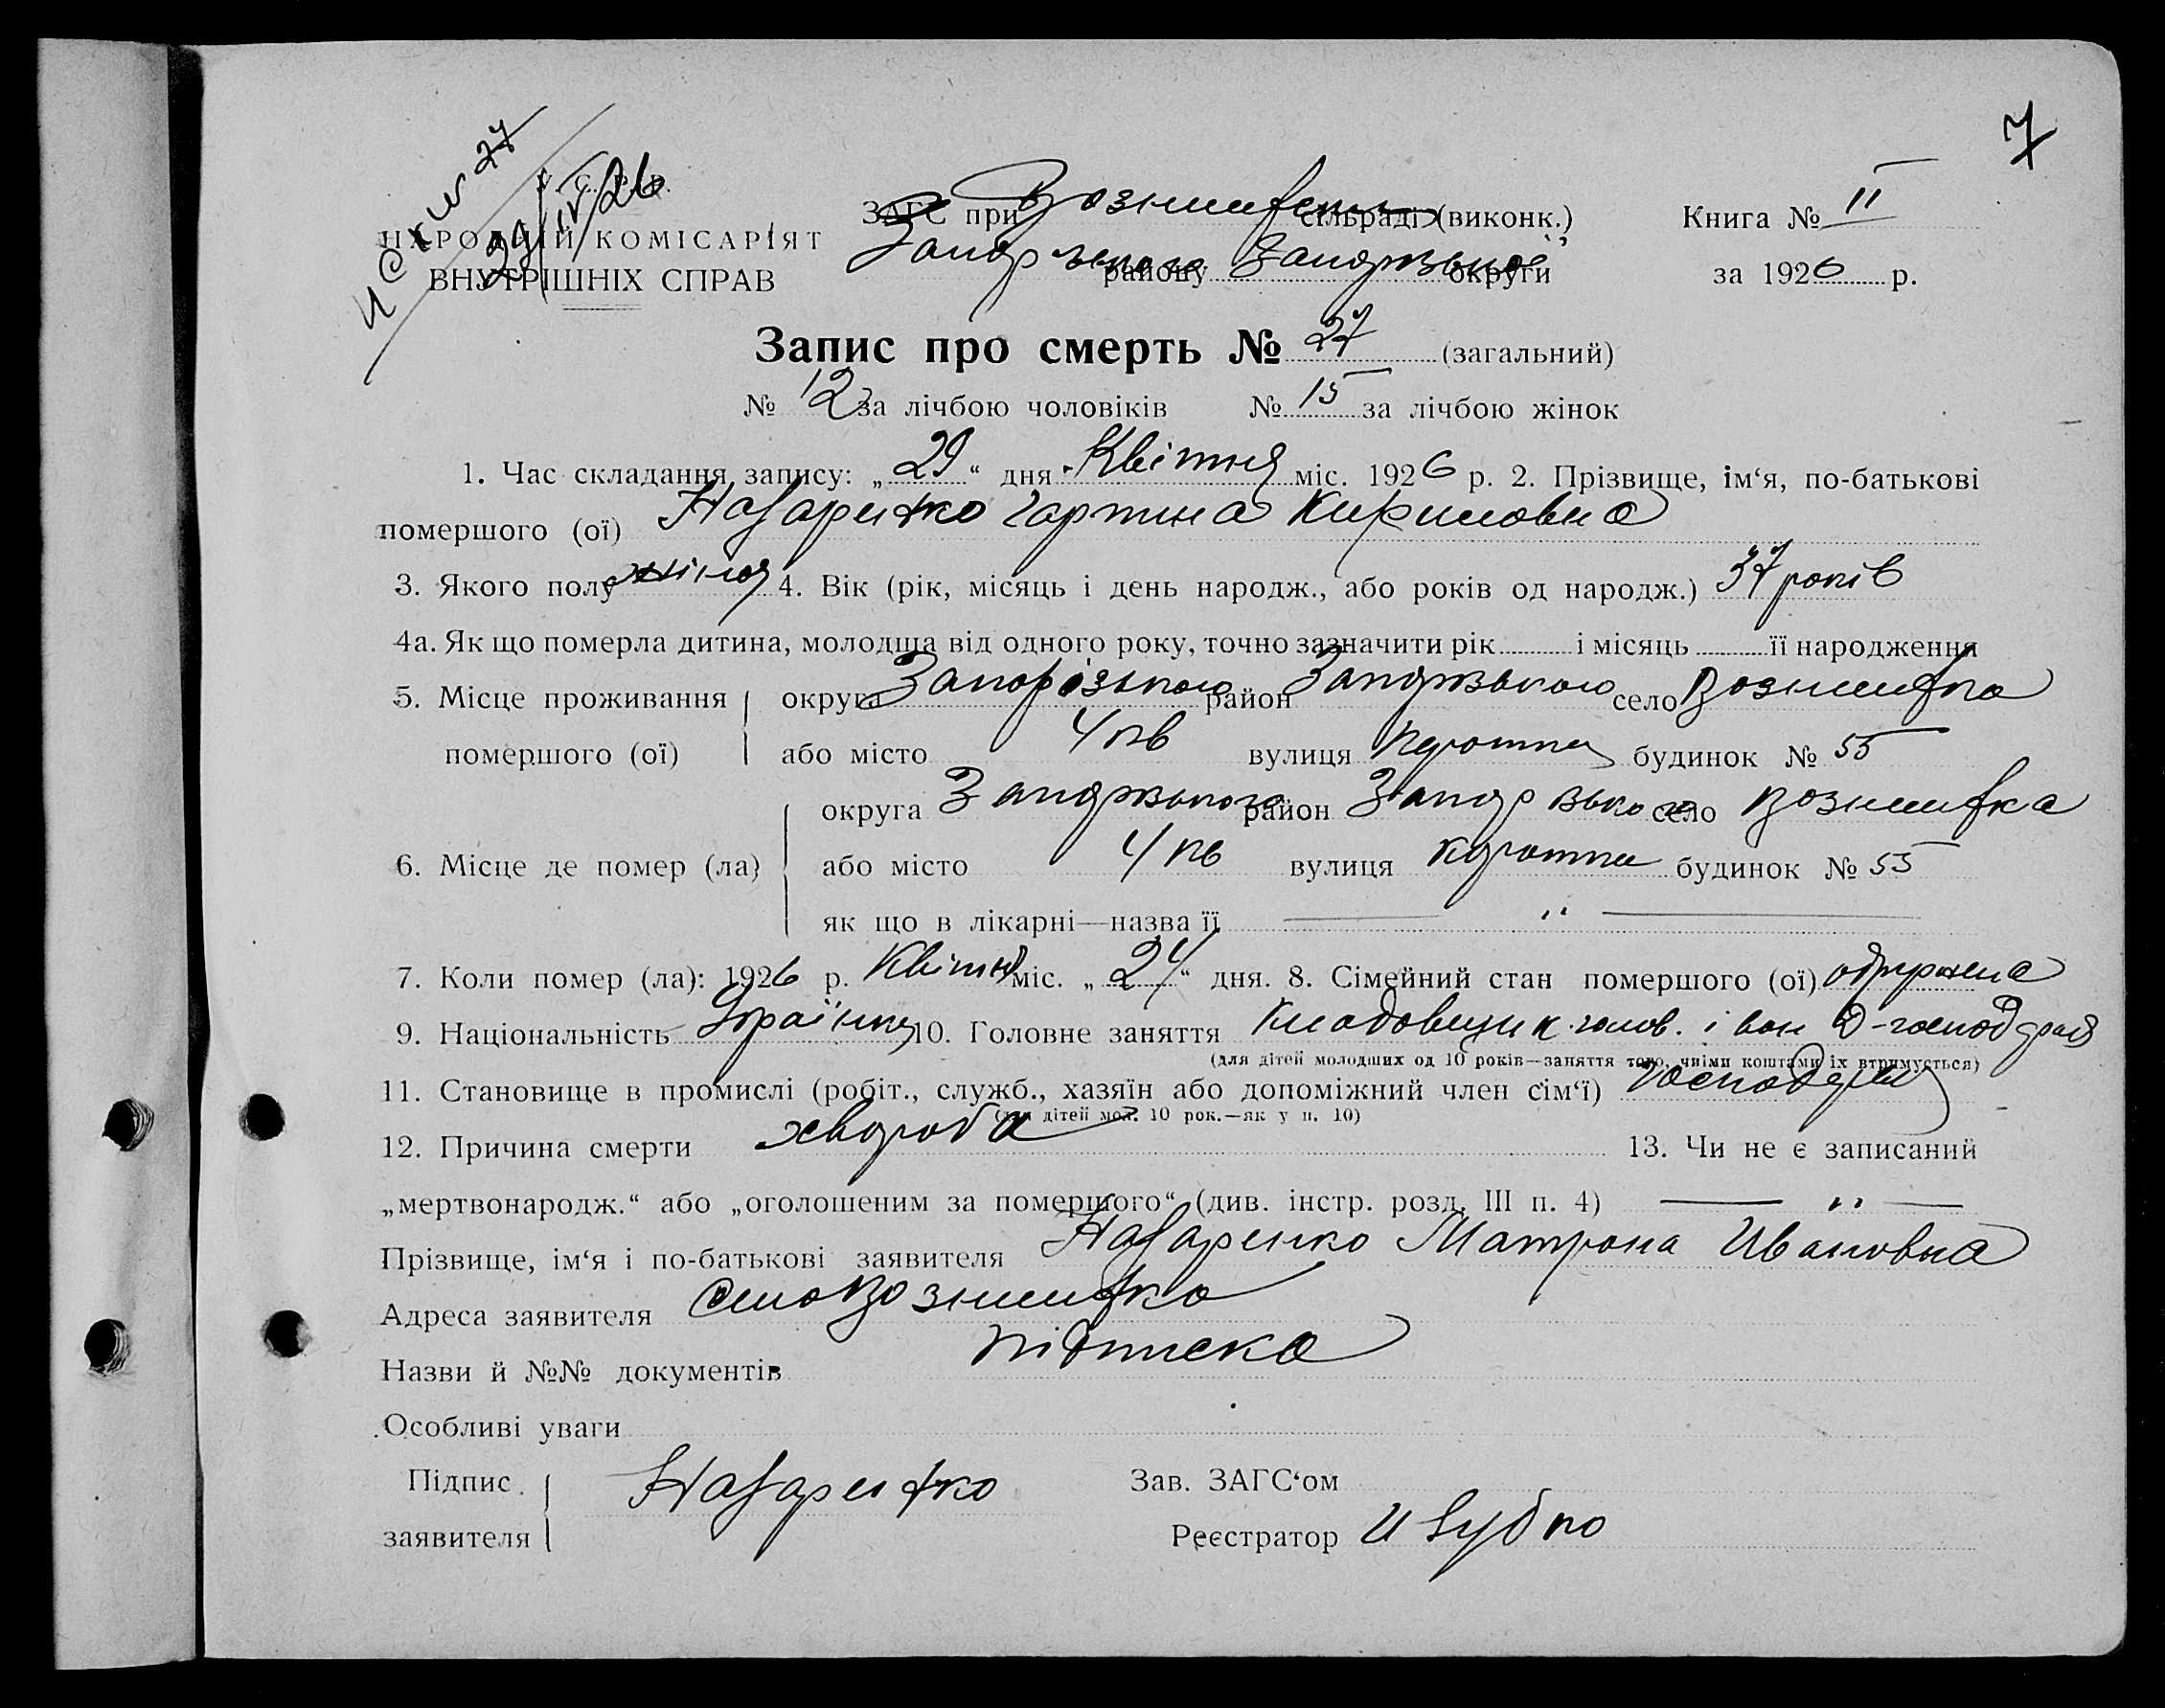 7
У. С. Р. Р.
29/IV/26
ЗАГС при Вознишевській сільраді (виконк.)
Книга № II
НАРОДНІЙ КОМІСАРІЯТ
ВНУТРІШНІХ СПРАВ
району округи
за 1926 р.
Запис про смерть № 27 (загальний)
№ 12 за лічбою чоловіків № 15 за лічбою жінок
1. Час складання запису: „29“ дня Квітня міс. 1926 р. 2. Прізвище, ім‘я, по-батькові
помершого (ої) Назаренко Кириловна
3. Якого полу жіноч 4. Вік (рік, місяць і день народж., або років од народж.) 37 років
4а. Як що померла дитина, молодша від одного року, точно зазначити рік і місяць її народження
5. Місце проживання округа Запорізького район Запорзького село Вознишевка
помершого (ої) або місто 4 кв вулиця Коротка будинок № 55
округа Запорзького район Запорзького село Вознишевка
6. Місце де помер (ла) або місто 4 кв вулиця Коротка будинок № 55
як що в лікарні—назва її — „ —
7. Коли помер (ла): 1926 р. Квітня міс. „24“ дня. 8. Сімейний стан помершого (ої) одружена
9. Національність Українка 10. Головне заняття Кладовщик голов. і вон Д-господарка
(для дітей молодших од 10 років—заняття того, чиїми коштами їх втримується)
11. Становище в промислі (робіт., служб., хазяїн або допоміжний член сім‘ї)
(для дітей мол. 10 рок.—як у п. 10)
12. Причина смерти хвороба 13. Чи не є записаний
„мертвонародж.“ або „оголошеним за помершого“ (див. інстр. розд. III п. 4) — „ —
Прізвище, ім‘я і по-батькові заявителя Назаренко Матрона Ивановна
Адреса заявителя село Вознишевка
Назви й №№ документів підписка
Особливі уваги
Підпис Назаренко Зав. ЗАГС‘ом
заявителя Реєстратор